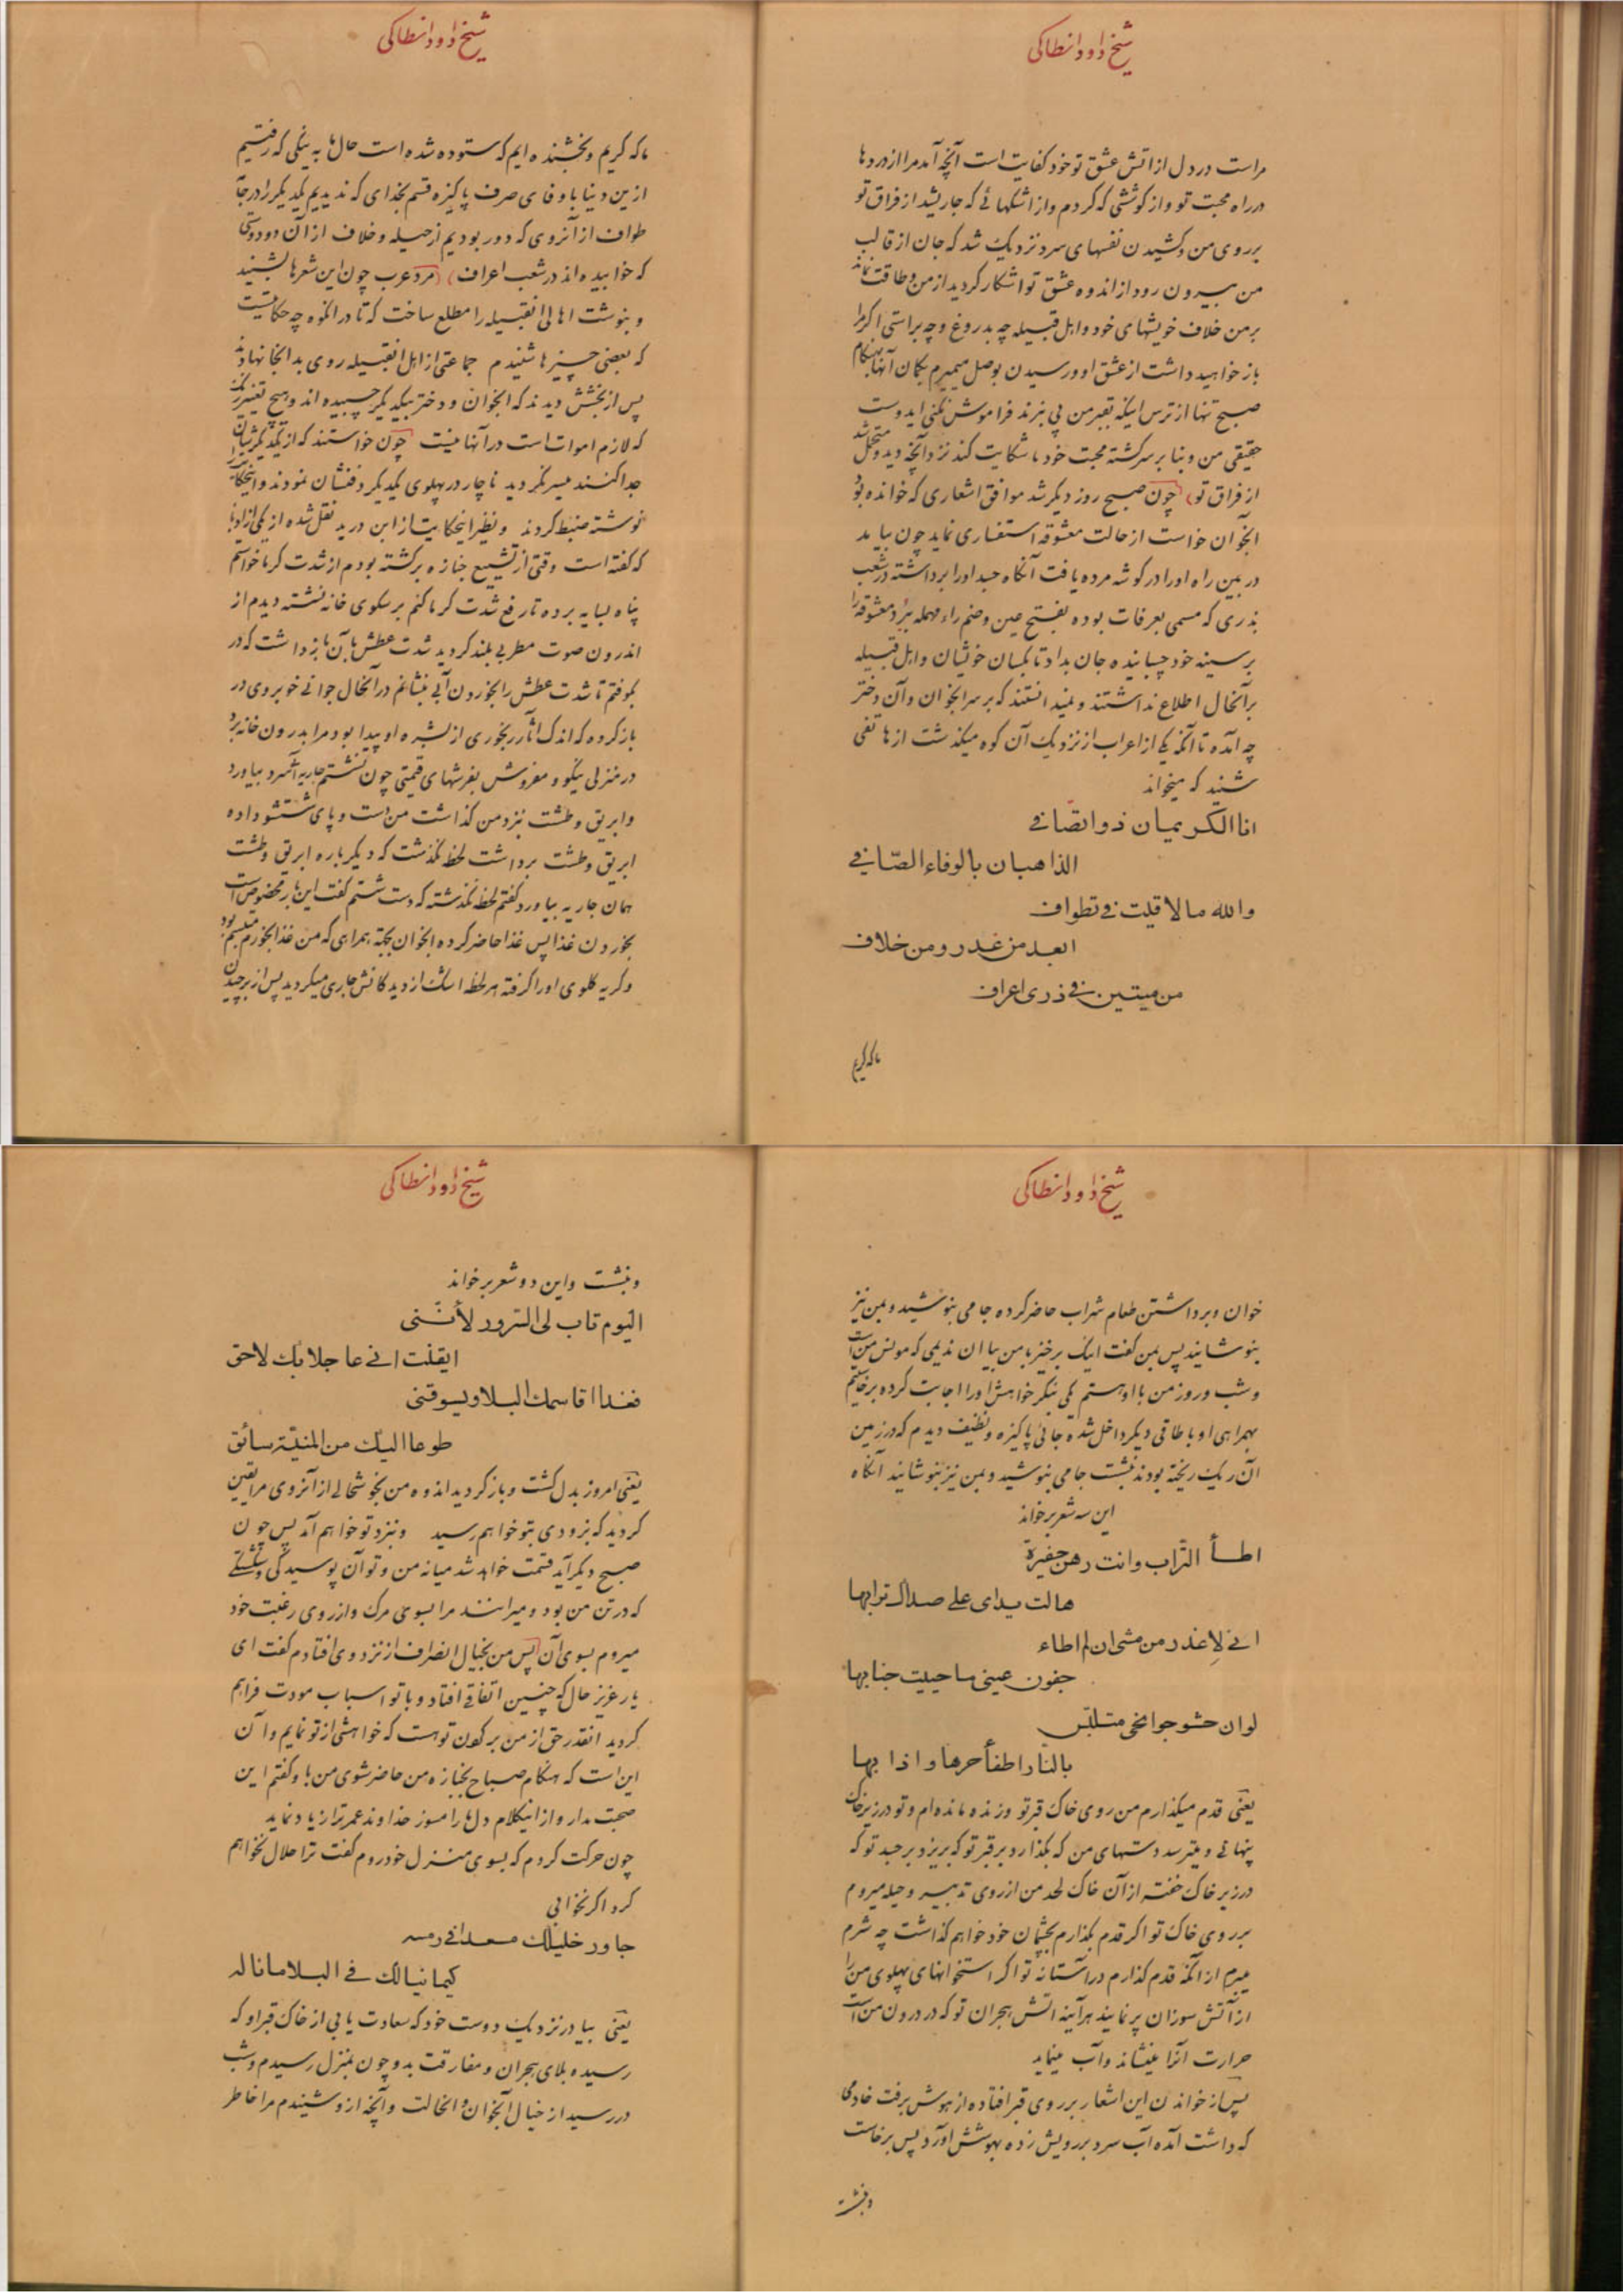 شیخ داود انطاکی
مراست در دل از اتش عشق تو خود کفایت است آنچه آمد مرا از درد ها
در راه محبت تو و از کوششی که کردم و از اشکهائے که جاریشد از فراق تو
بر روی من و کشیدن نفسهای سرد نزدیک شد که جان از قالب
من بیرون رود از اندوه عشق تو اشکار کردید از من و طاقت نماند
بر من خلاف خویشهای خود و اهل قبیله چه بدروغ و چه براستی اکر مرا
باز خواهید داشت از عشق او و رسیدن بوصل میمیرم بکمان آنها بهنکام
صبح تنها از ترس اینکه بقبر من پی نبرند فراموش نکنی ایدوست
حقیقی من و بنا بر سرکشته محبت خود تا شکایت کند نزد آنچه دید و متحمل شد
از فراق تو چون صبح روز دیکر شد موافق اشعاری که خوانده بود
آنجوان خواست از حالت معشوقه استفساری نماید چون بیامد
در بین راه او را در کوشه مرده یافت آنکاه جسد او را برداشته در شعب
بذری که مسمی بعرفات بوده بفتح عین و ضم راء مهمله ببرد و معشوقه را
بر سینه خود چسبانیده جان بداد تا بکسان خویشان و اهل قبیله
بر آنحال اطلاع نداشتند و نمیدانستند که بر سر انجوان و آن دختر
چه آمده تا آنکه یکی از اعراب از نزدیک آن کوه میکذشت از هاتفی
شنید که میخواند
انا الکریمان ذوا نصافی
الذاهبان بالوفاء الصّافی
والله ما لاقیت فی تطواف
ابعد من غدر و من خلاف
من میتین فی ذری اعراف
ما که کریم
شیخ داود انطاکی
ما که کریم و بخشنده ایم که ستوده شده است حال ما به نیکی که رفتیم
از این دنیا با وفای صرف پاکیزه قسم بخدای که ندیدیم یکدیکر را در جا
طواف از آنروی که دور بودیم از حیله و خلاف از آن دو دوستی
که خوابیده اند در شعب اعراف مرد عرب چون این شعرها بشنید
و بنوشت اهالی انقبیله را مطلع ساخت که تا در انکوه چه حکایتیست
که بعضی چیزها شنیدم جماعتی از اهل انقبیله روی بد انجا نهادند
پس از بخشش دیدند که انجوان و دختر بیکدیکر چسبیده اند و هیچ تغییر نکرده
که لازم اموات است در آنها نیست چون خواستند که از یکدیکرشان
جدا کنند میسر نکردید ناچار در پهلوی یکدیکر دفنشان نمودند و اینحکایت را
نوشته ضبط کردند و نظیر اینحکایت از ابن درید نقل شده از یکی از ادبا
که کفته است وقتی از تشییع جنازه برکشته بودم از شدت کرما خواستم
پناه بسایه برده تا رفع شدت کرما کنم بر سکوی خانه نشسته دیدم از
اندرون صوت مطربی بلند کردید شدت عطش بآن بازداشت که در
بکوفتم تا شدت عطش را بخوردن آبی بنشانم در آنحال جوانی خوبروی در
باز کرده که اندک آثار رنجوری از بشره او پیدا بود مرا بدرون خانه برد
در منزلی نیکو و مفروش بفرشهای قیمتی چون نشستم جاریه آب سرد بیاورد
و ابریق و طشت نزد من کذاشت من دست و پای شتشو داده
ابریق و طشت برداشت لحظه نکذشت که دیکر باره ابریق و طشت
همان جاریه بیاورد کفتم لحظه نکذشته که دست شستم کفت این بار مخصوص است
بخوردن غذا پس غذا حاضر کرده انجوان بجهة همراهی که من غذا بخورم متبسم بود
و کریه کلوی او را کرفته هر لحظه اشک از دیدکانش جاری میکردید پس از برچیدن
شیخ داود انطاکی
خوان و برداشتن طعام شراب حاضر کرده جامی بنوشید و بمن نیز
بنوشانید پس بمن کفت اینک برخیز با من بیا ان ندیمی که مونس من است
و شب و روز من با او هستم یکی بنکر خواهش او را اجابت کرده برخاستم
بهمراهی او باطاقی دیکر داخل شده جائی پاکیزه و نظیف دیدم که در زمین
آن ریک ریخته بودند بنشست جامی بنوشید و بمن نیز بنوشانید آنکاه
این سه شعر برخواند
اطأ التّراب وانت رهن حفیرة
هالت یدای علی صداک ترابها
انی لاغدر من مشی ان لم اطاء
جفون عینی ما حییت جنابها
لو ان حشو جوانحی متلبّس
بالنار اطفأ حرها و اذا بها
یعنی قدم میکذارم من روی خاک قبر تو و زنده مانده ام و تو در زیر خاک
پنهانی و میترسد دستهای من که بکذارد بر قبر تو که بریزد بر جسد تو که
در زیر خاک خفته از آن خاک لحد من از روی تدبیر و حیله میروم
بر روی خاک تو اکر قدم بکذارم بچشمان خود خواهم کذاشت چه شرم
میبرم از آنکه قدم کذارم در آستانه تو اکر استخوانهای پهلوی من را
از آتش سوزان پر نمایند هر آینه اتش هجران تو که در درون من است
حرارت آنرا بنشاند و آب نماید
پس از خواندن این اشعار بر روی قبر افتاده از هوش برفت خادمی
که داشت آمده آب سرد بر رویش زده بهوشش آورد پس برخاست
و بنشست
شیخ داود انطاکی
و بنشست و این دو شعر برخواند
الیوم تاب لی السّرور لأنّنی
ایقنت انی عاجلا بک لاحق
فغدا اقاسمک البلا و یسوقنی
طوعا الیک من المنیّة سائق
یعنی امروز بدل کشت و باز کردید اندوه من بخوشحالی از آنروی مرا یقین
کردید که بزودی بتو خواهم رسید و بنزد تو خواهم آمد پس چون
صبح دیکر آید قسمت خواهد شد میانه من و تو آن پوسیدکی و شکستکی
که در تن من بود و میرانند مرا بسوی مرک و از روی رغبت خود
میروم بسوی آن پس من بخیال انصراف از نزد وی افتادم کفت ای
یار عزیز حال که چنین اتفاقی افتاد و با تو اسباب مودت فراهم
کردید انقدر حق از من بر کون تو هست که خواهشی از تو نمایم و آن
این است که هنکام صباح بجنازه من حاضر شوی من باو کفتم این
صحبت مدار و از اینکلام دل ما را مسوز خداوند عمر ترا زیاد نماید
چون حرکت کردم که بسوی منزل خود روم کفت ترا حلال نخواهم
کرد اکر نخوابی
جاور خلیلک مسعدا فی رمسه
کیما ینالک فی البلا ما ناله
یعنی بیا در نزدیک دوست خود که سعادت یابی از خاک قبر او که
رسیده بلای هجران و مفارقت بدو چون بمنزل رسیدم و شب
در رسید از خیال آنجوان و انحالت و آنچه از و شنیدم مرا خاطر